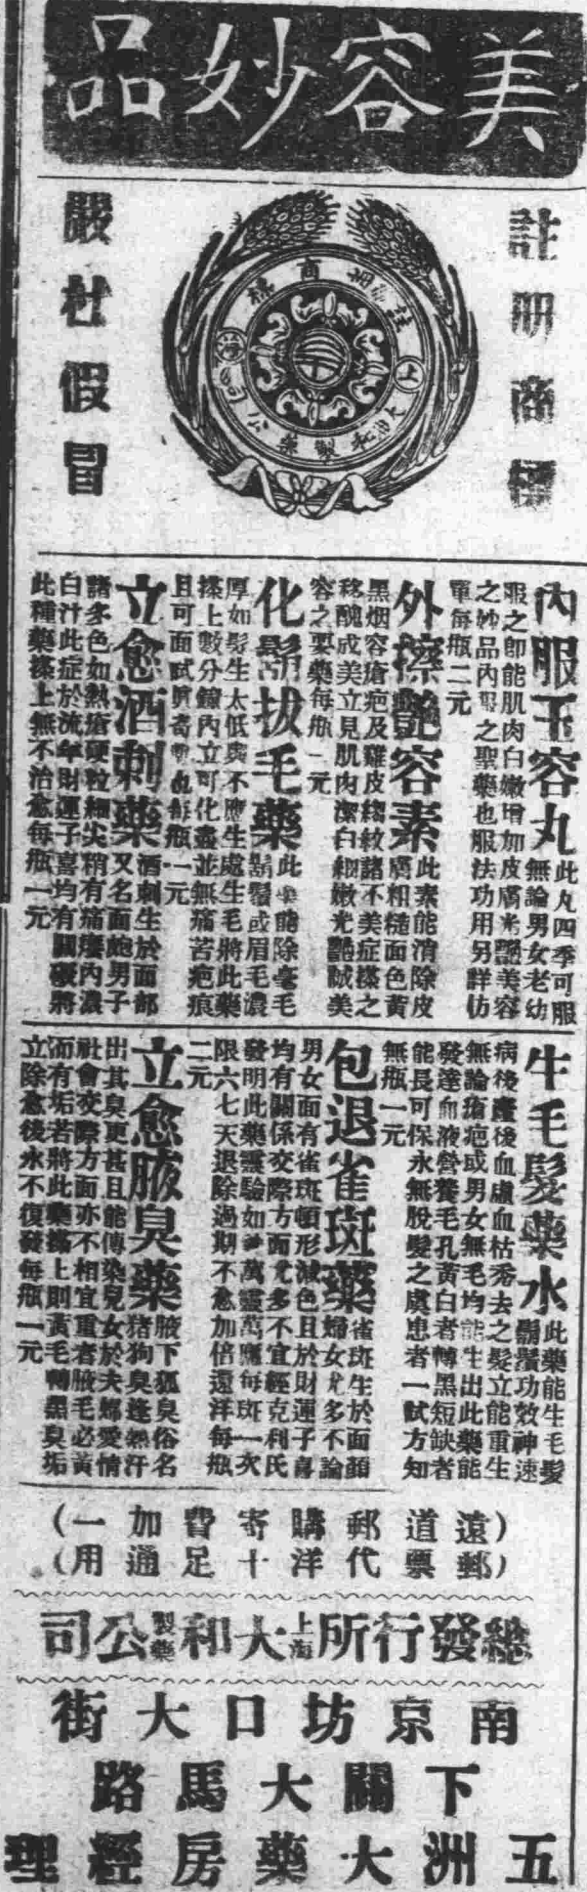 美容妙品
註册商標
嚴杜假冒
註册商標
上海
大和製藥公司
內服玉容丸
此丸四季可服
無論男女老幼
服之卽能肌肉白嫩增加皮膚光艷美容
之妙品內服之聖藥也服法功用另詳仿
單每瓶二元
外擦艷容素
此素能消除皮
膚粗糙面色黃
黑烟容瘡疤及雞皮縐紋諸不美症搽之
移醜成美立見肌肉潔白細嫩光艷誠美
容之要藥每瓶一元
化鬍拔毛藥
此藥能除毫毛
鬍鬚或眉毛濃
厚如髮生太低與不應生處生毛將此藥
搽上數分鐘內立可化盡並無痛苦疤痕
且可面試眞奇驗也每瓶一元
立愈酒刺藥
酒刺生於面部
又名面皰男子
諸多色如熱瘡硬粒細尖稍有痛癢內濃
白汁此症於流年財運子喜均有關礙將
此種藥搽上無不治愈每瓶一元
生毛髮藥水
此藥能生毛髮
鬍鬚功效神速
病後產後血虛血枯禿去之髮立能重生
無論瘡疤或男女無毛均能生出此藥能
發達血液營養毛孔黃白者轉黑短缺者
能長可保永無脫髮之虞患者一試方知
無瓶一元
包退雀斑藥
雀斑生於面顏
婦女尤多不論
男女面有雀斑頓形減色且於財運子喜
均有關係交際方面尤多不宜經克利氏
發明此藥靈驗如神萬靈萬應每班一次
限六七天退除過期不愈加倍還洋每瓶
二元
立愈腋臭藥
腋下狐臭俗名
猪狗臭逢熱汗
出其臭更甚且能傳染兒女於夫婦愛情
社會交際方面亦不相宜重者腋毛必黃
而有垢若將此藥搽上則黃毛轉黑臭垢
立除愈後永不復發每瓶一元
(遠道郵購寄費加一)
(郵票代洋十足通用)
總發行所上海大和製藥公司
南京坊口大街
下關大馬路
五洲大藥房經理